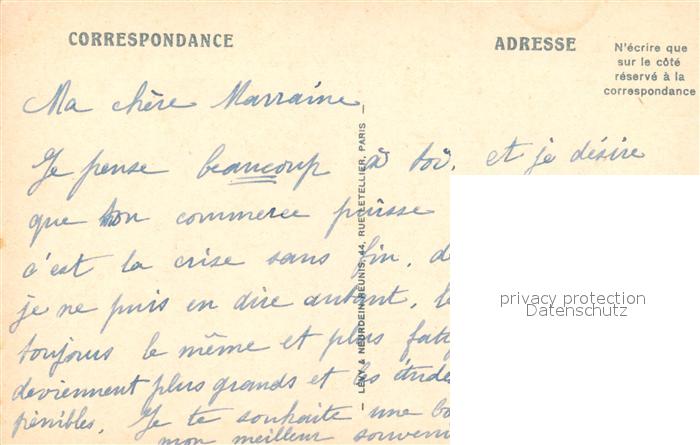 CORRESPONDANCE
ADRESSE
N'écrire que
sur le côté
réservé à la
correspondance
Ma chère Marraine
Je pense beaucoup à toi, et je désire
que ton commerce puisse
c'est la crise sans fin, d
je ne puis en dire autant, l
toujours le même et plus fati
deviennent plus grands et les études
pénibles. Je te souhaite une bo
mon meilleur souveni
— LÉVY & NEURDEIN RÉUNIS, 44, RUE LETELLIER, PARIS —
privacy protection
Datenschutz